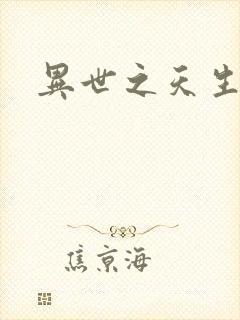 異世之天生
焦京海